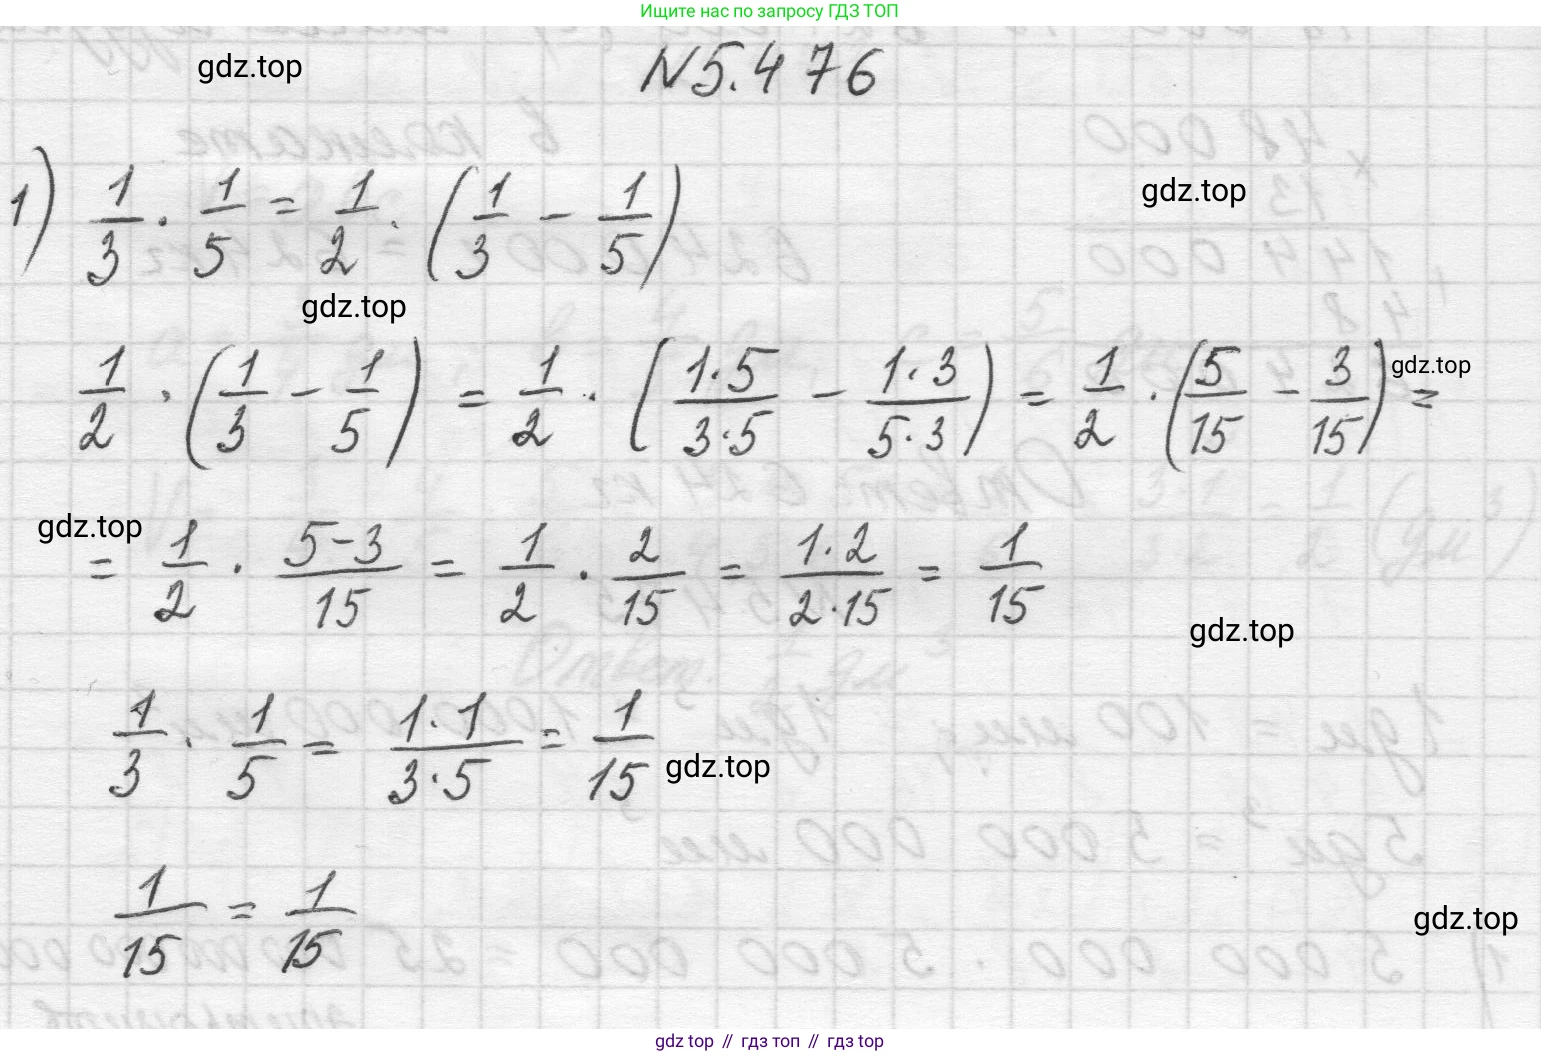 Ищите нас по запросу ГДЗ ТОП
gdz.top
N5.476
1) 1/3 · 1/5 = 1/2 · (1/3 − 1/5)
gdz.top
gdz.top
1/2 · (1/3 − 1/5) = 1/2 · (1·5/3·5 − 1·3/5·3) = 1/2 · (5/15 − 3/15) =
gdz.top
gdz.top
= 1/2 · 5−3/15 = 1/2 · 2/15 = 1·2/2·15 = 1/15
gdz.top
1/3 · 1/5 = 1·1/3·5 = 1/15
gdz.top
1/15 = 1/15
gdz.top
gdz top // гдз топ // гдз top